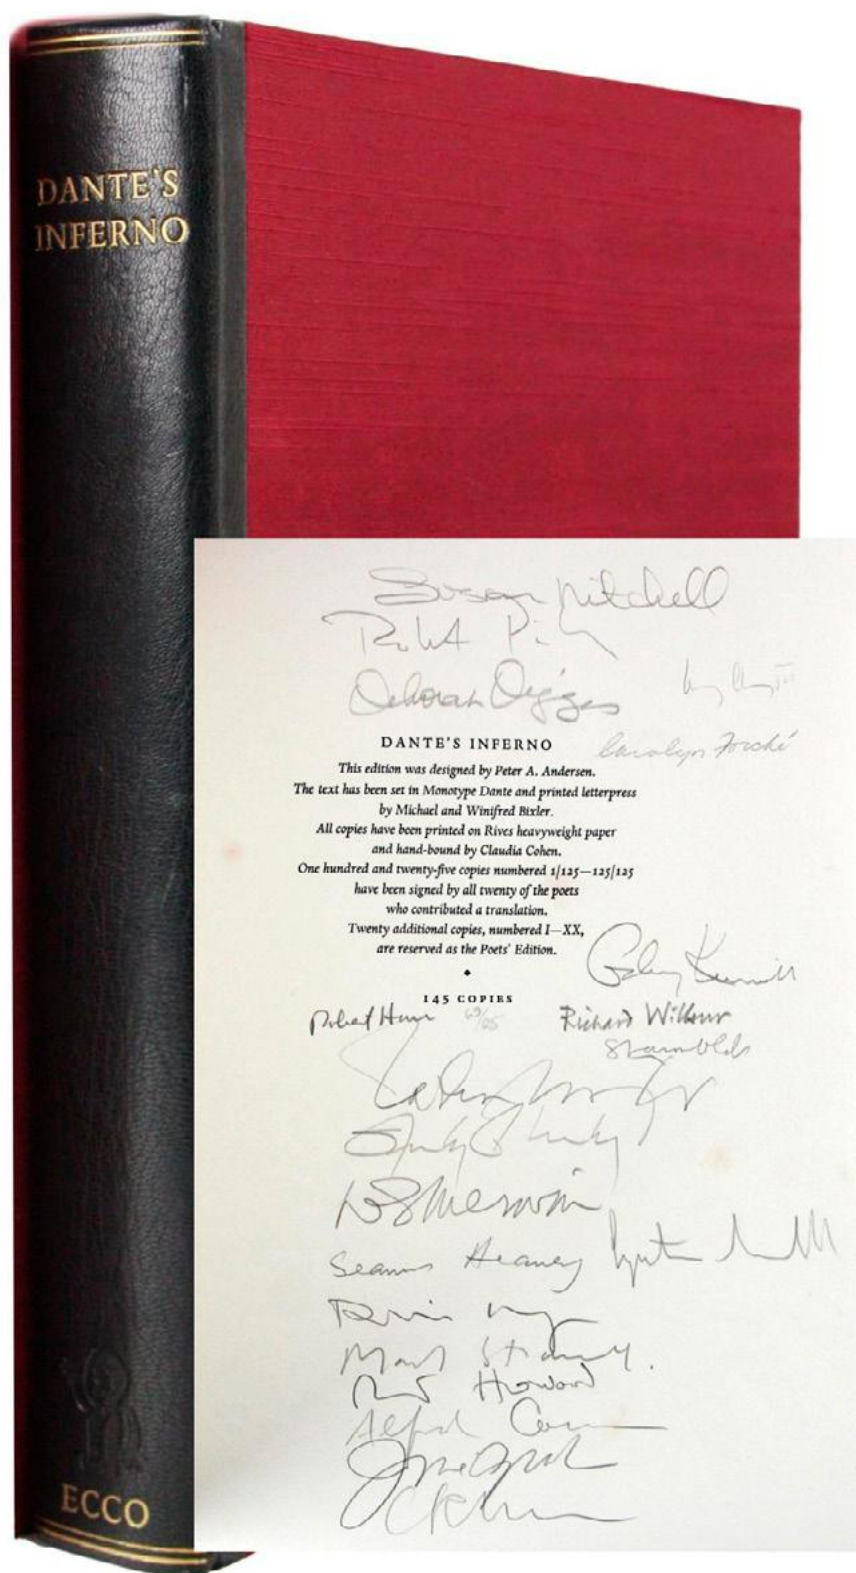 DANTE'S
INFERNO
ECCO
Susan Mitchell
Deborah Digges
Carolyn Forché
DANTE'S INFERNO
This edition was designed by Peter A. Andersen.
The text has been set in Monotype Dante and printed letterpress
by Michael and Winifred Bixler.
All copies have been printed on Rives heavyweight paper
and hand-bound by Claudia Cohen.
One hundred and twenty-five copies numbered 1/125—125/125
have been signed by all twenty of the poets
who contributed a translation.
Twenty additional copies, numbered I—XX,
are reserved as the Poets' Edition.
Galway Kinnell
145 COPIES
Robert Hass Richard Wilbur
Sharon Olds
WS Merwin
Seamus Heaney
Mark Strand
Howard
Alfred Corn
Jorie Graham